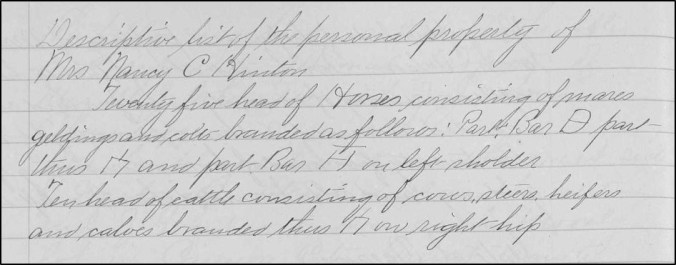 Descriptive list of the personal property of
Mrs Nancy C Hinton
Twenty five head of Horses, consisting of mares
geldings and colts branded as follows: Part Bar part
thus and part Bar on left sholder
Ten head of cattle consisting of cows, steers, heifers
and calves branded thus on right hip